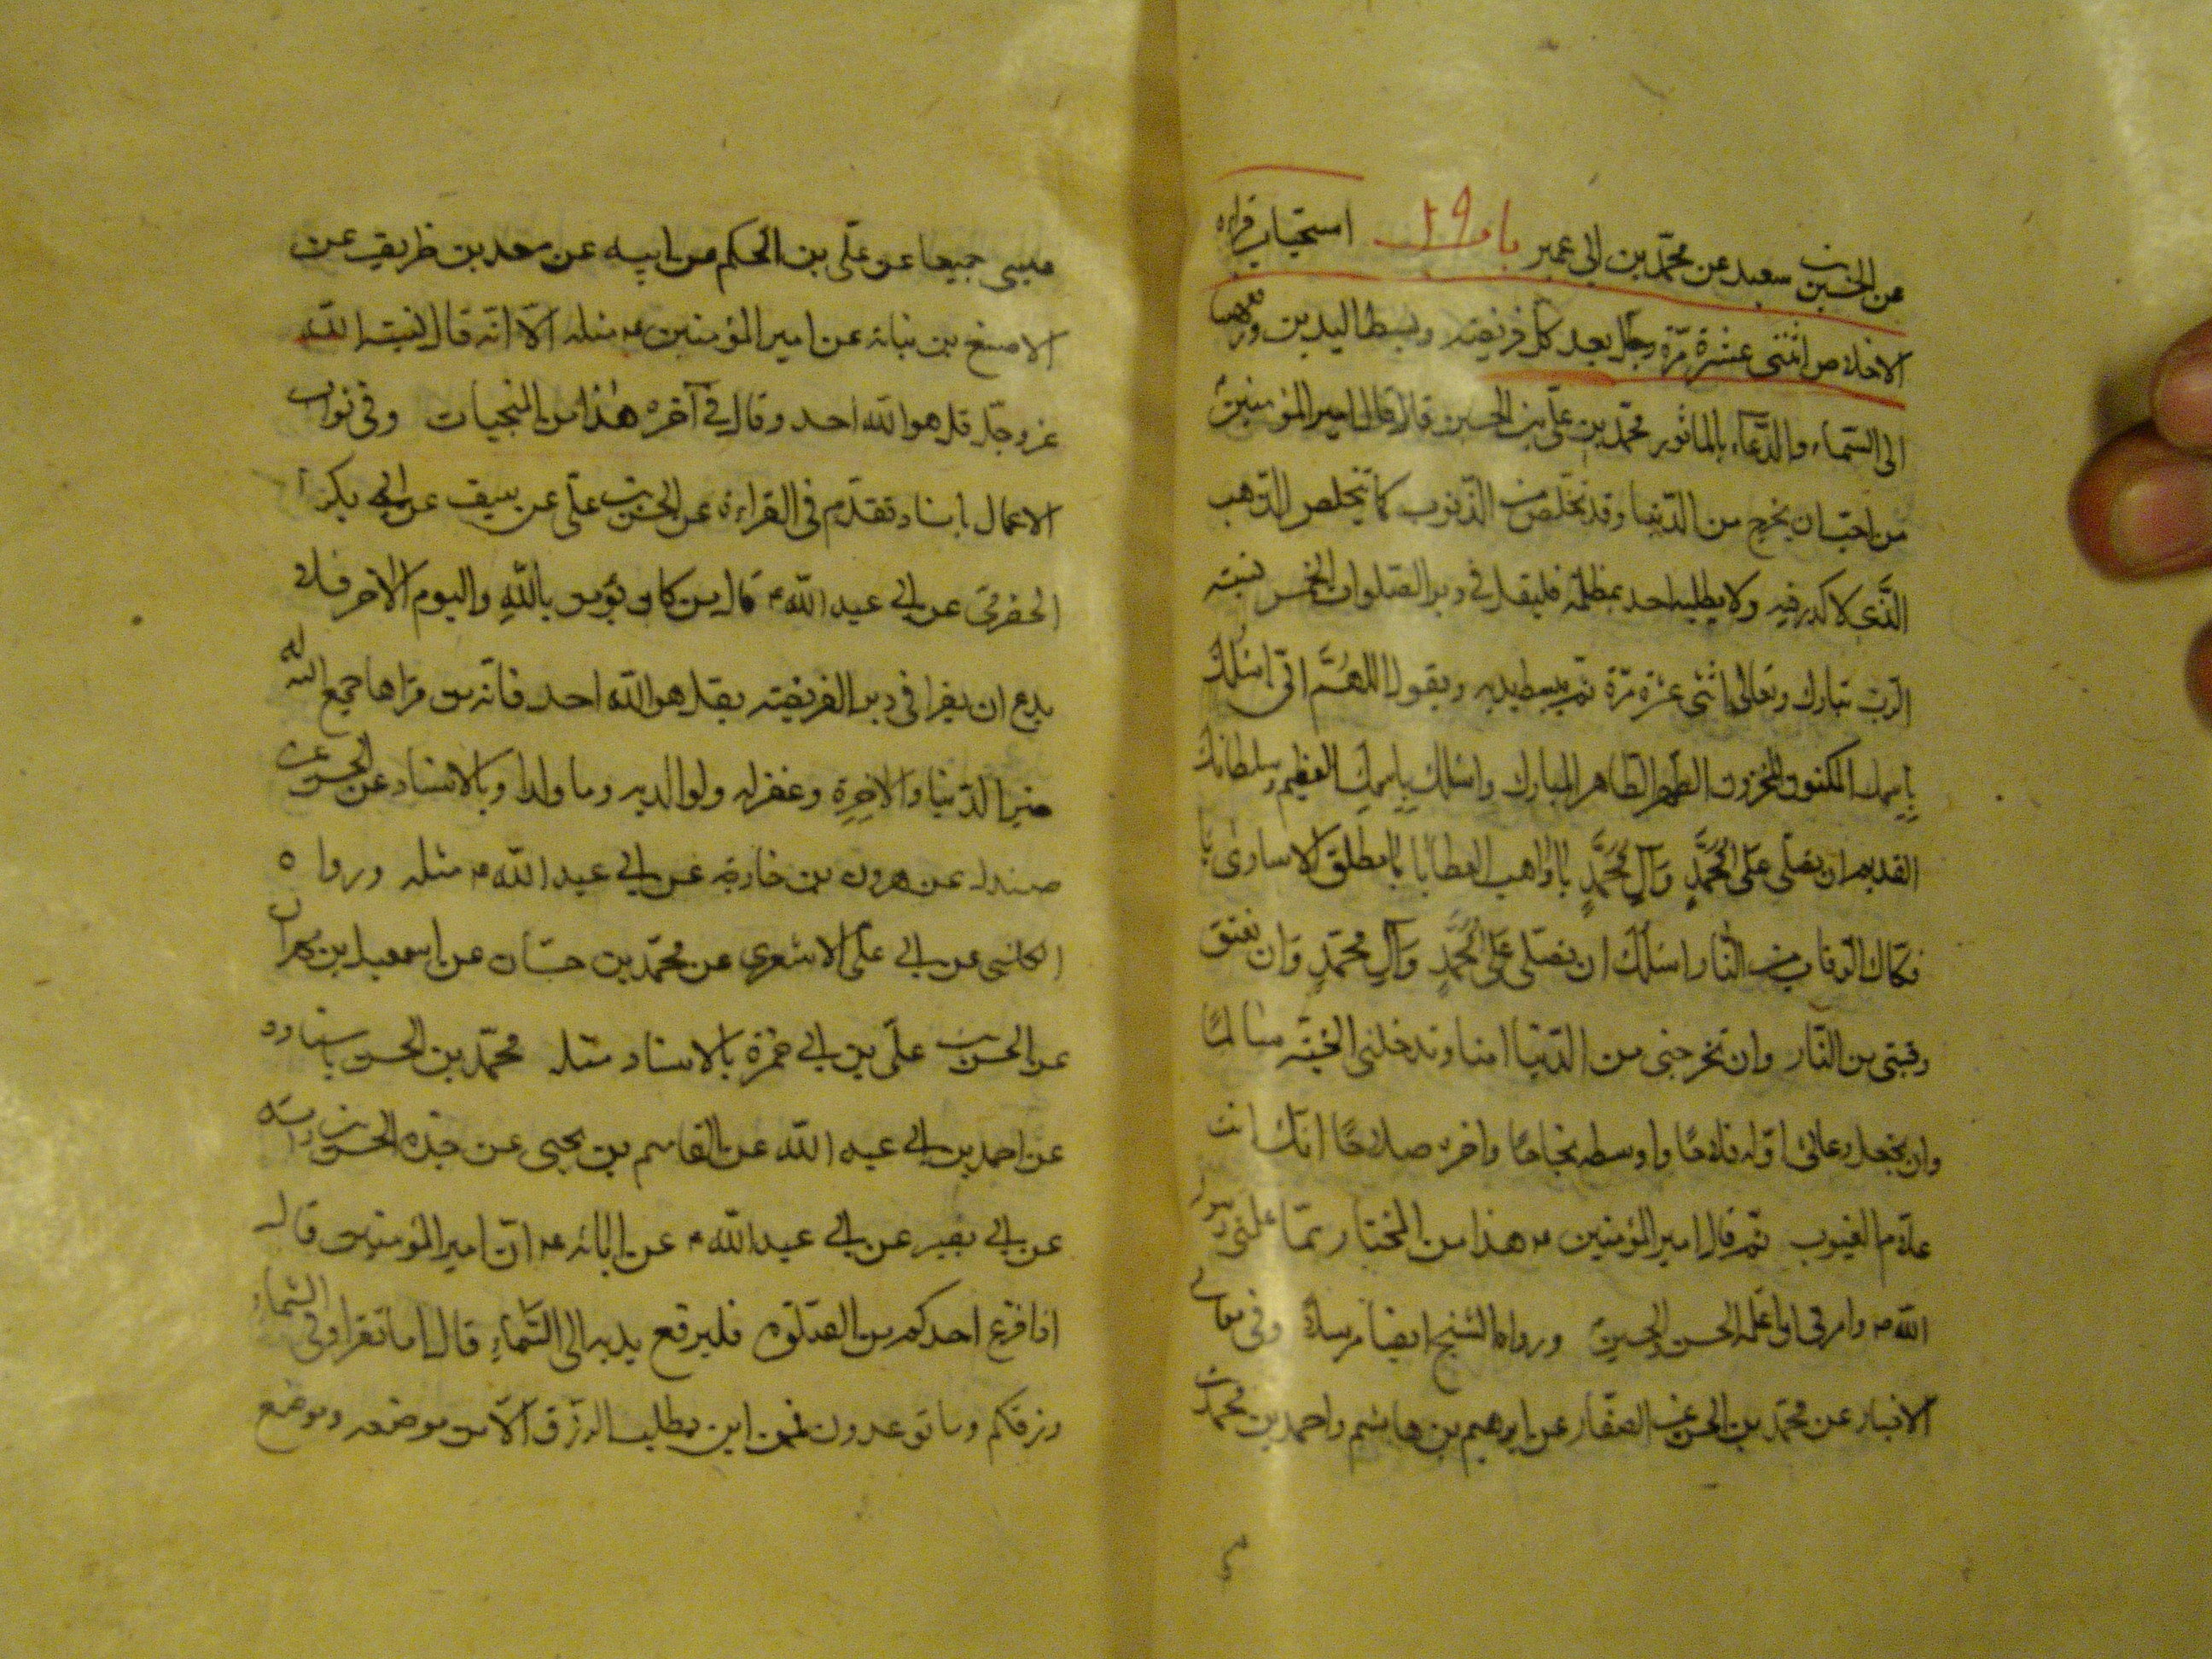 عن الحسين بن سعيد عن محمّد بن ابى عمير باب ٢٩ استحباب قراءة
الاخلاص اثنتى عشرة مرّة بعد كل فريضة وبسط اليدين ورفعهما
الى السّماء والدّعاء بالماثور محمّد بن علّى بن الحسين قال قال امير المؤمنين
من احبّ ان يخرج من الدّنيا وقد تخلّص من الذّنوب كما يتخلّص الذّهب
الّذى لا كدر فيه ولا يطلبه احد بمظلمة فليقل فى دبر الصّلوات الخمس نسبة
الرّبّ تبارك وتعالى اثنتى عشرة مرّة ثم يبسط يديه ويقول اللهُمَّ انّى اسئلك
بِاِسمِك المكنون المخزون الطّهر الطّاهر المبارك واسئلك بِاِسمِكِ العظيم وسلطانك
القديم ان تصلّى على مُحمَّدٍ وَآلِ مُحَمَّدٍ يا واهب العطايا يا مطلق الاسارى يا
فكّاك الرّقاب من النّار اسئلك ان تصلّى عَلى مُحَمَّدٍ وَآلِ محمّدٍ وَان تعتق
رقبتى من النّار وان تخرجنى من الدّنيا امنا وتدخلنى الجنّة سالمًا
وان تجعل دعائى اوّله فلاحًا واوسطه نجاحًا واخره صلاحًا انّك انت
علّام الغيوب ثم قال امير المؤمنين ع هذا من المختار ممّا علّمنى رسول
الله ص وامرنى ان اعلّمه الحسن والحسين ورواه الشيخ ايضا مرسلا وفى معانى
الاخبار عن محمّد بن الحسن عن الصفّار عن ابرهيم بن هاشم واحمد بن محمّد بن
عيسى جميعا عن علّى بن الحكم عن ابيه عن سعد بن طريف عن
الاصبغ بن نباته عن امير المؤمنين ع مثله الّا انّه قال نسبة الله
عزّ وجلّ قل هو الله احد وقال فى آخره هذا من المنجيات وفى ثواب
الاعمال باسناد تقدّم فى القراءة عن الحسن بن علّى عن سيف عن ابى بكر
الحضرمّى عن ابى عبد الله ع قال من كان يؤمن بالله واليوم الاخر فلا
يدع ان يقرا فى دبر الفريضة بقل هو الله احد فانّه من قراها جمع الله له
خير الدّنيا والاخِرَةِ وغفر له ولوالديه وما ولدا وبالاسناد عن الحسن عن
صندل عن هرون بن خارجة عن ابى عبد الله ع مثله ورواه
الكلينى عن ابى علّى الاشعرى عن محمّد بن حسّان عن اسمعيل بن مهران
عن الحسن بن علّى بن ابى حمزة بالاسناد مثله محمّد بن الحسن باسناده
عن احمد بن ابى عبد الله عن القاسم بن يحيى عن جدّه الحسن بن راشد
عن ابى بصير عن ابى عبد الله ع عن ابائه ع انّ امير المؤمنين قال
اذا فرغ احدكم من الصّلوة فليرفع يديه الى السّماءِ قال اما تقرا وفى السّماء
رزقكم وما توعدون فمن اين يطلب الرّزق الّا من موضعه وموضع